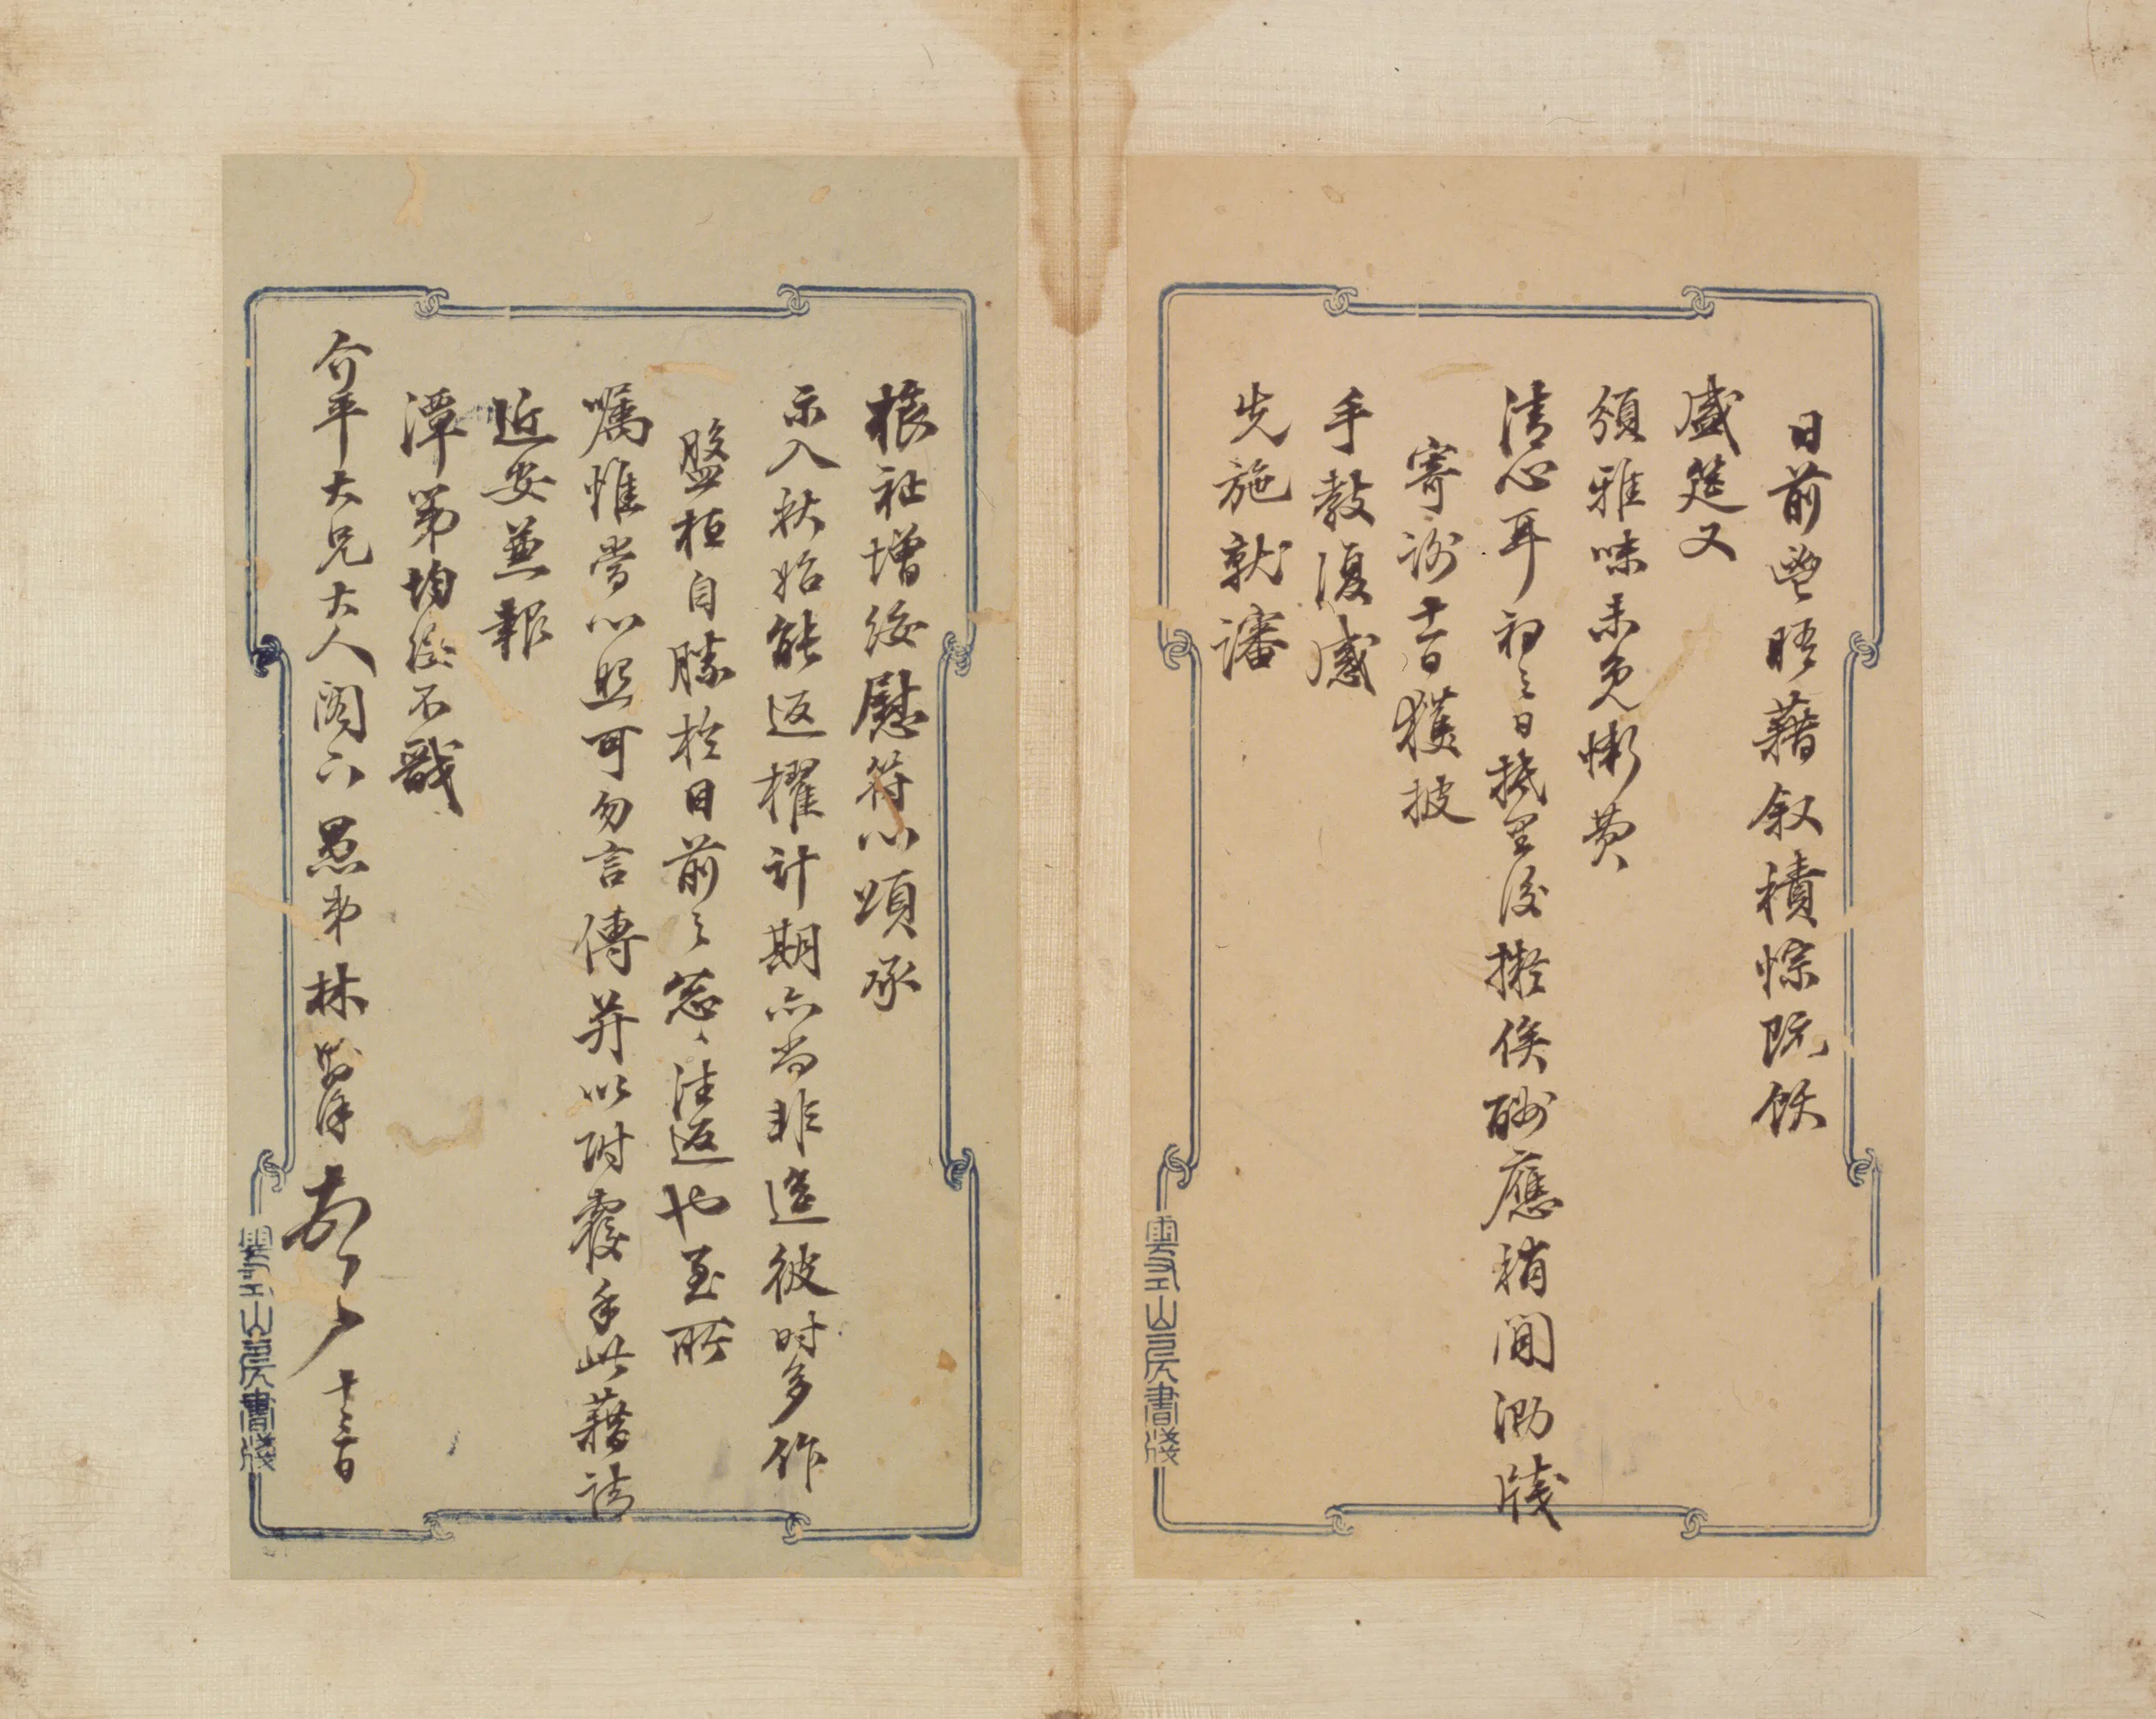 日前晤藉叙積悰既飫
盛筵又
領雅味未免慚費
清心耳初三日抵里後擬俟酬應稍閒泐牋
寄謝十一日獲披
手教復感
先施就審
祉增綏慰符心頌承
示入秋始能返櫂計期亦尚非遥彼時多作
盤桓自勝於日前之怱怱往返也至所
囑惟當心照可勿言傳荐以附覆手此藉請
近安並報
潭第均綏不戩
介平大兄大人閣下愚弟林十三日
雲山房書牋
雲山房書牋